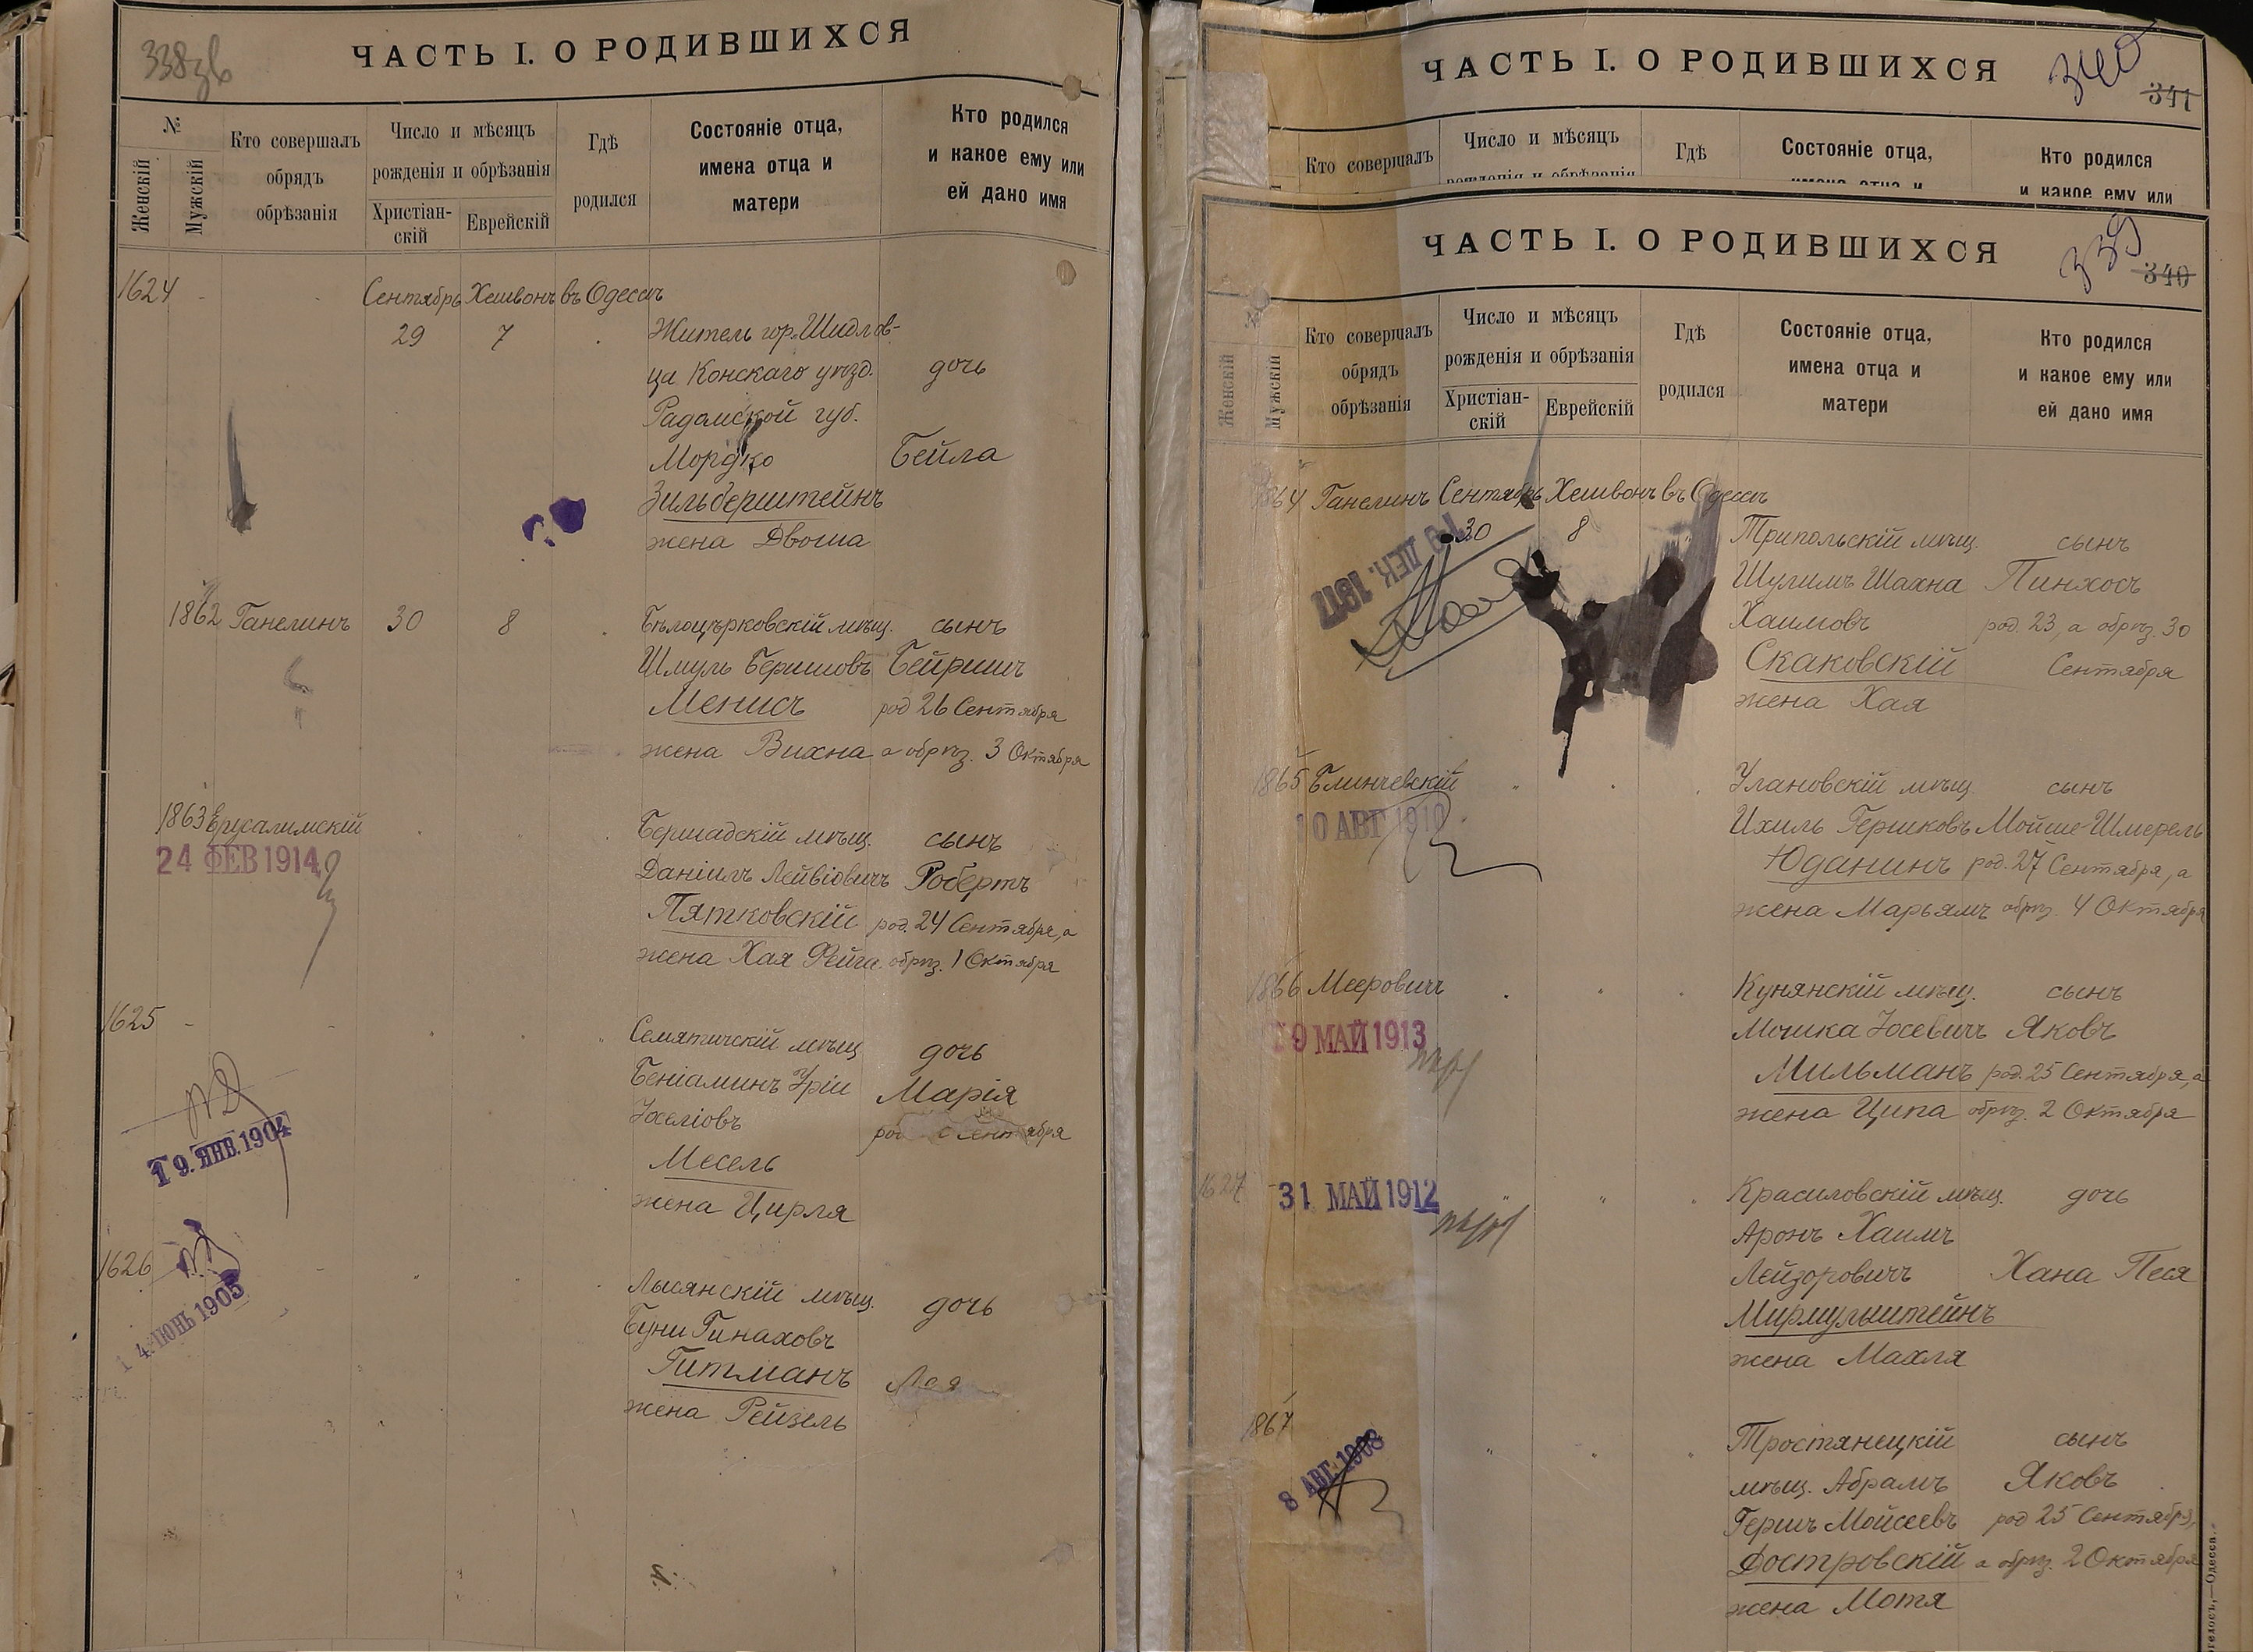 338зв
ЧАСТЬ I. О РОДИВШИХСЯ
№
Женскій
Мужскій
Кто совершалъ
обрядъ
обрѣзанія
Число и мѣсяцъ
рожденія и обрѣзанія
Христіан-
скій
Еврейскій
Гдѣ
родился
Состояніе отца,
имена отца и
матери
Кто родился
и какое ему или
ей дано имя
1624 - Сентябрь Хешвонъ въ Одессѣ
29 7 Житель гор. Шидлов-
ца Конскаго уѣзд. дочь
Радомской губ.
Мордко Бейла
Зильберштейнъ
жена Двоша
1862 Ганелинъ 30 8 Бѣлоцерковскій мѣщ. сынъ
Шмуль Беришовъ Бейришъ
Менисъ род 26 Сентября
жена Вихна а обрѣз. 3 Октября
1863 Ерусалимскій Бершадскій мѣщ. сынъ
24 ФЕВ 1914 Даніилъ Лейвіовичъ Робертъ
Пятковскій род. 24 Сентября, а
жена Хая Фейга обрѣз. 1 Октября
1625 - Семятичскій мѣщ. дочь
Беніаминъ Уріи Марія
Іоселіовъ род Сентября
Месель
19. ЯНВ. 1904
жена Цирля
1626 Лысянскій мѣщ. дочь
14. ІЮНЬ 1905
Буни Гинаховъ
Гитманъ Лея
жена Рейзель
ЧАСТЬ I. О РОДИВШИХСЯ
340
341
Кто совершалъ
Число и мѣсяцъ
рожденія и обрѣзанія
Гдѣ
Состояніе отца,
имена отца и
Кто родился
и какое ему или
ЧАСТЬ I. О РОДИВШИХСЯ
339
340
Женскій
Мужскій
Кто совершалъ
обрядъ
обрѣзанія
Число и мѣсяцъ
рожденія и обрѣзанія
Христіан-
скій
Еврейскій
Гдѣ
родился
Состояніе отца,
имена отца и
матери
Кто родился
и какое ему или
ей дано имя
1864 Ганелинъ Сентябрь Хешвонъ въ Одессѣ
30 8 Трипольскій мѣщ. сынъ
ДЕК. 1911
Шулимъ Шахна Пинхосъ
Хаимовъ род. 23, а обрѣз. 30
Скаковскій Сентября
жена Хая
1865 Блинчевскій Улановскій мѣщ. сынъ
10 АВГ 1910 Ихиль Гершковъ Мойше-Шмерель
Юданинъ род. 27 Сентября, а
жена Марьямъ обрѣз. 4 Октября
1866 Мееровичъ Кунянскій мѣщ. сынъ
19 МАЙ 1913 Мошка Іосевичъ Яковъ
Мильманъ род. 25 Сентября, а
жена Ципа обрѣз. 2 Октября
1627 31 МАЙ 1912 Красиловскій мѣщ. дочь
Аронъ Хаимъ
Лейзоровичъ Хана Песя
Мирмульштейнъ
жена Махля
1867 Тростянецкій сынъ
8 АВГ. 1908 мѣщ. Абрамъ Яковъ
Гершъ Мойсеевъ род 25 Сентября,
Достровскій а обрѣз. 2 Октября
жена Мотя